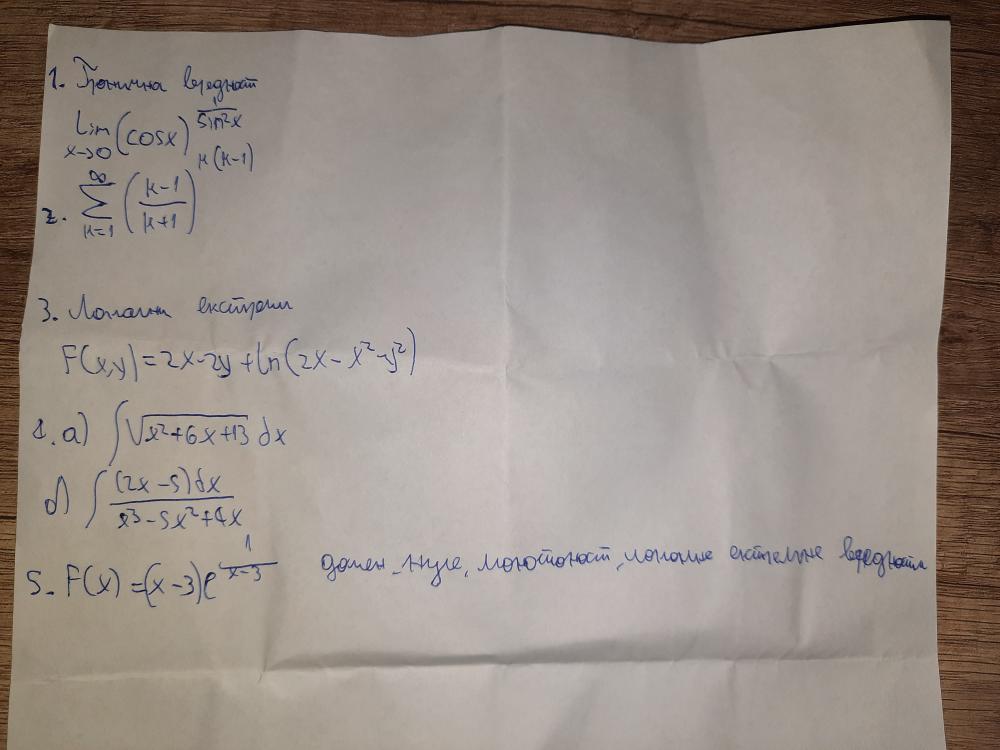 1. Гранична вредност
lim x→0 (cosx)^(1/sin²x)
2. ∑ k=1 ∞ ((k-1)/(k+1))^(k(k-1))
3. Локални екстреми
F(x,y)=2x-2y+ln(2x-x²-y²)
1. а) ∫√(x²+6x+13) dx
б) ∫ (2x-5)dx/(x³-5x²+4x)
5. F(x)=(x-3)e^(1/(x-3)) домен, нуле, монотоност, локалне вредности